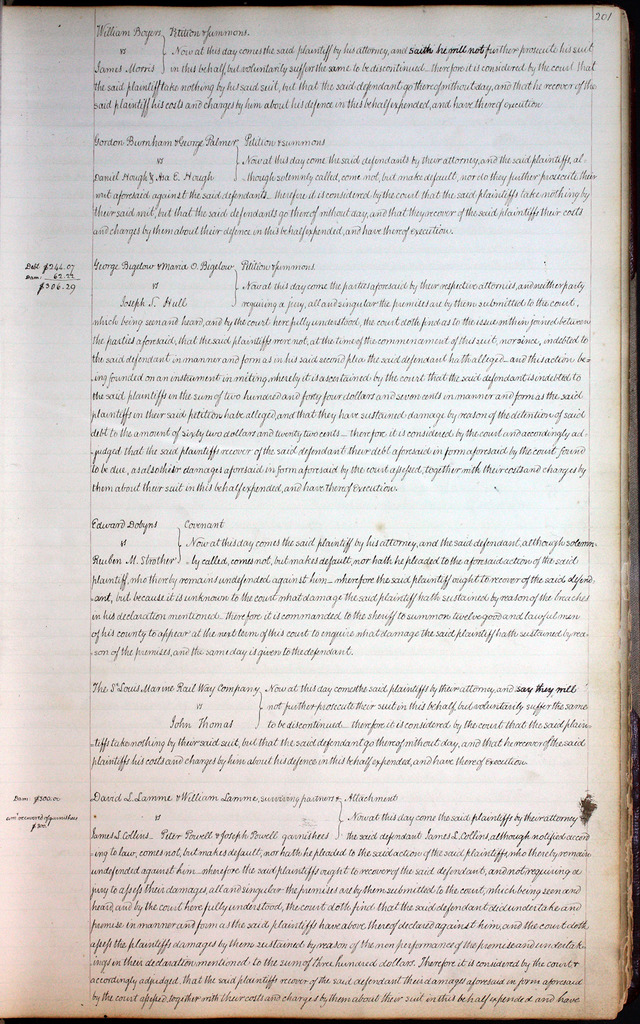 201
William Boyers } Petition & summons.
vs } Now at this day comes the said plaintiff by his attorney, and saith he will not further prosecute his suit
James Morris } in this behalf but voluntarily suffers the same to be discontinued – therefore it is considered by the court that
the said plaintiff take nothing by his said suit, but that the said defendant go thereof without day, and that he recover of the
said plaintiff his costs and charges by him about his defence in this behalf expended, and have thereof execution.
Gordon Burnham & George Palmer } Petition & summons
vs } Now at this day come the said defendants by their attorney, and the said plaintiffs, al-
Daniel Hough & Asa E. Hough } though solemnly called, come not, but make default, nor do they further prosecute their
suit aforesaid against the said defendants – therefore it is considered by the court that the said plaintiffs take nothing by
their said suit, but that the said defendants go thereof without day, and that they recover of the said plaintiffs their costs
and charges by them about their defence in this behalf expended, and have thereof execution.
Debt $244.07
Dam: 62.22
$306.29
George Bigelow & Maria O. Bigelow } Petition & summons
vs } Now at this day come the parties aforesaid by their respective attornies, and neither party
Joseph S. Hull } requiring a jury, all and singular the premises are by them submitted to the court,
which being seen and heard, and by the court here fully understood, the court doth find as to the issue within joined between
the parties aforesaid, that the said plaintiffs were not, at the time of the commencement of this suit, nor since, indebted to
the said defendant in manner and form as in his said second plea the said defendant hath alleged – and this action be-
ing founded on an instrument in writing, whereby it is ascertained by the court that the said defendant is indebted to
the said plaintiffs in the sum of two hundred and forty four dollars and seven cents in manner and form as the said
plaintiffs in their said petition have alleged, and that they have sustained damage by reason of the detention of said
debt to the amount of sixty two dollars and twenty two cents – therefore it is considered by the court and accordingly ad-
judged that the said plaintiffs recover of the said defendant their debt aforesaid in form aforesaid by the court found
to be due, as also their damages aforesaid in form aforesaid by the court assessed, together with their costs and charges by
them about their suit in this behalf expended, and have thereof execution.
Edward Dobyns } Covenant
vs } Now at this day comes the said plaintiff by his attorney, and the said defendant, although solemn-
Reuben M. Strother } ly called, comes not, but makes default, nor hath he pleaded to the aforesaid action of the said
plaintiff, who thereby remains undefended against him – wherefore the said plaintiff ought to recover of the said defend-
ant, but because it is unknown to the court what damage the said plaintiff hath sustained by reason of the breaches
in his declaration mentioned – therefore it is commanded to the sheriff to summon twelve good and lawful men
of his county to appear at the next term of this court to enquire what damage the said plaintiff hath sustained by rea-
son of the premises, and the same day is given to the defendant.
The St Louis Marine Rail Way Company } Now at this day comes the said plaintiffs by their attorney, and say they will
vs } not further prosecute their suit in this behalf, but voluntarily suffer the same
John Thomas } to be discontinued – therefore it is considered by the court that the said plain-
tiffs take nothing by their said suit, but that the said defendant go thereof without day, and that he recover of the said
plaintiffs his costs and charges by him about his defence in this behalf expended, and have thereof execution.
Dam: $300.00
$300
David L. Lamme & William Lamme, surviving partners & } Attachment
vs } Now at this day come the said plaintiffs by their attorney
James L. Collins – Peter Powell & Joseph Powell garnishees } the said defendant James L. Collins, although notified accord
ing to law, comes not, but makes default, nor hath he pleaded to the said action of the said plaintiffs, who thereby remain
undefended against him – wherefore the said plaintiffs ought to recover of the said defendant, and not requiring a
jury to assess their damages, all and singular the premises are by them submitted to the court, which being seen and
heard, and by the court here fully understood, the court doth find that the said defendant did undertake and
promise in manner and form as the said plaintiffs have above thereof declared against him, and the court doth
assess the plaintiffs damages by them sustained by reason of the non performance of the promises and undertak-
ings in their declaration mentioned to the sum of three hundred dollars. Therefore it is considered by the court &
accordingly adjudged, that the said plaintiffs recover of the said defendant their damages aforesaid in form aforesaid
by the court assessed, together with their costs and charges by them about their suit in this behalf expended and have